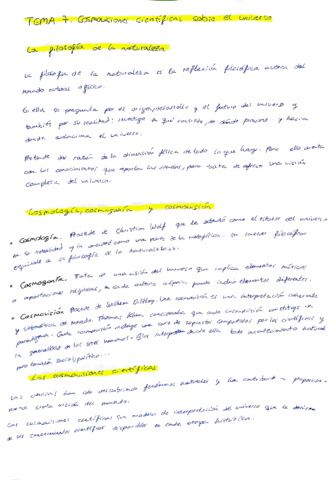 TEMA 7. Cosmovisiones científicas sobre el universo
La filosofía de la naturaleza
La filosofía de la naturaleza es la reflexión filosófica acerca del
mundo natural o físico.
Ella se pregunta por el origen, desarrollo y el futuro del universo y
también por su realidad: investiga en qué consiste, de dónde procede y hacia
donde evoluciona el universo.
Pretende dar razón de la dimensión física de todo lo que hay. Pero ella cuenta
con los conocimientos que aportan las ciencias, pero trata de ofrecer una visión
completa del universo.
Cosmología, cosmogonía y cosmovisión
• Cosmología. Procede de Christian Wolf que la entendió como el estudio del universo
en su totalidad y la consideró como una parte de la metafísica. Un sentido filosófico
equivale a la filosofía de la naturaleza.
• Cosmogonía. Trata de una visión del universo que implica elementos míticos
o aportaciones religiosas, en cada cultura o época puede incluir elementos diferentes.
• Cosmovisión. Procede de Dilthey. Una cosmovisión es una interpretación coherente
y sistemática del mundo. Thomas Kuhn consideraba que cada cosmovisión constituye un
paradigma. Cada cosmovisión incluye una serie de supuestos compartidos por los científicos y
la generalidad de los seres humanos. Ellos interpretan desde ella todo acontecimiento natural
pero también social, político...
Las cosmovisiones científicas
Las ciencias han ido descubriendo fenómenos naturales y han contribuido a proporcio-
narnos cierta visión del mundo.
Las cosmovisiones científicas son modelos de interpretación del universo que se derivan
de los conocimientos científicos disponibles en cada etapa histórica.